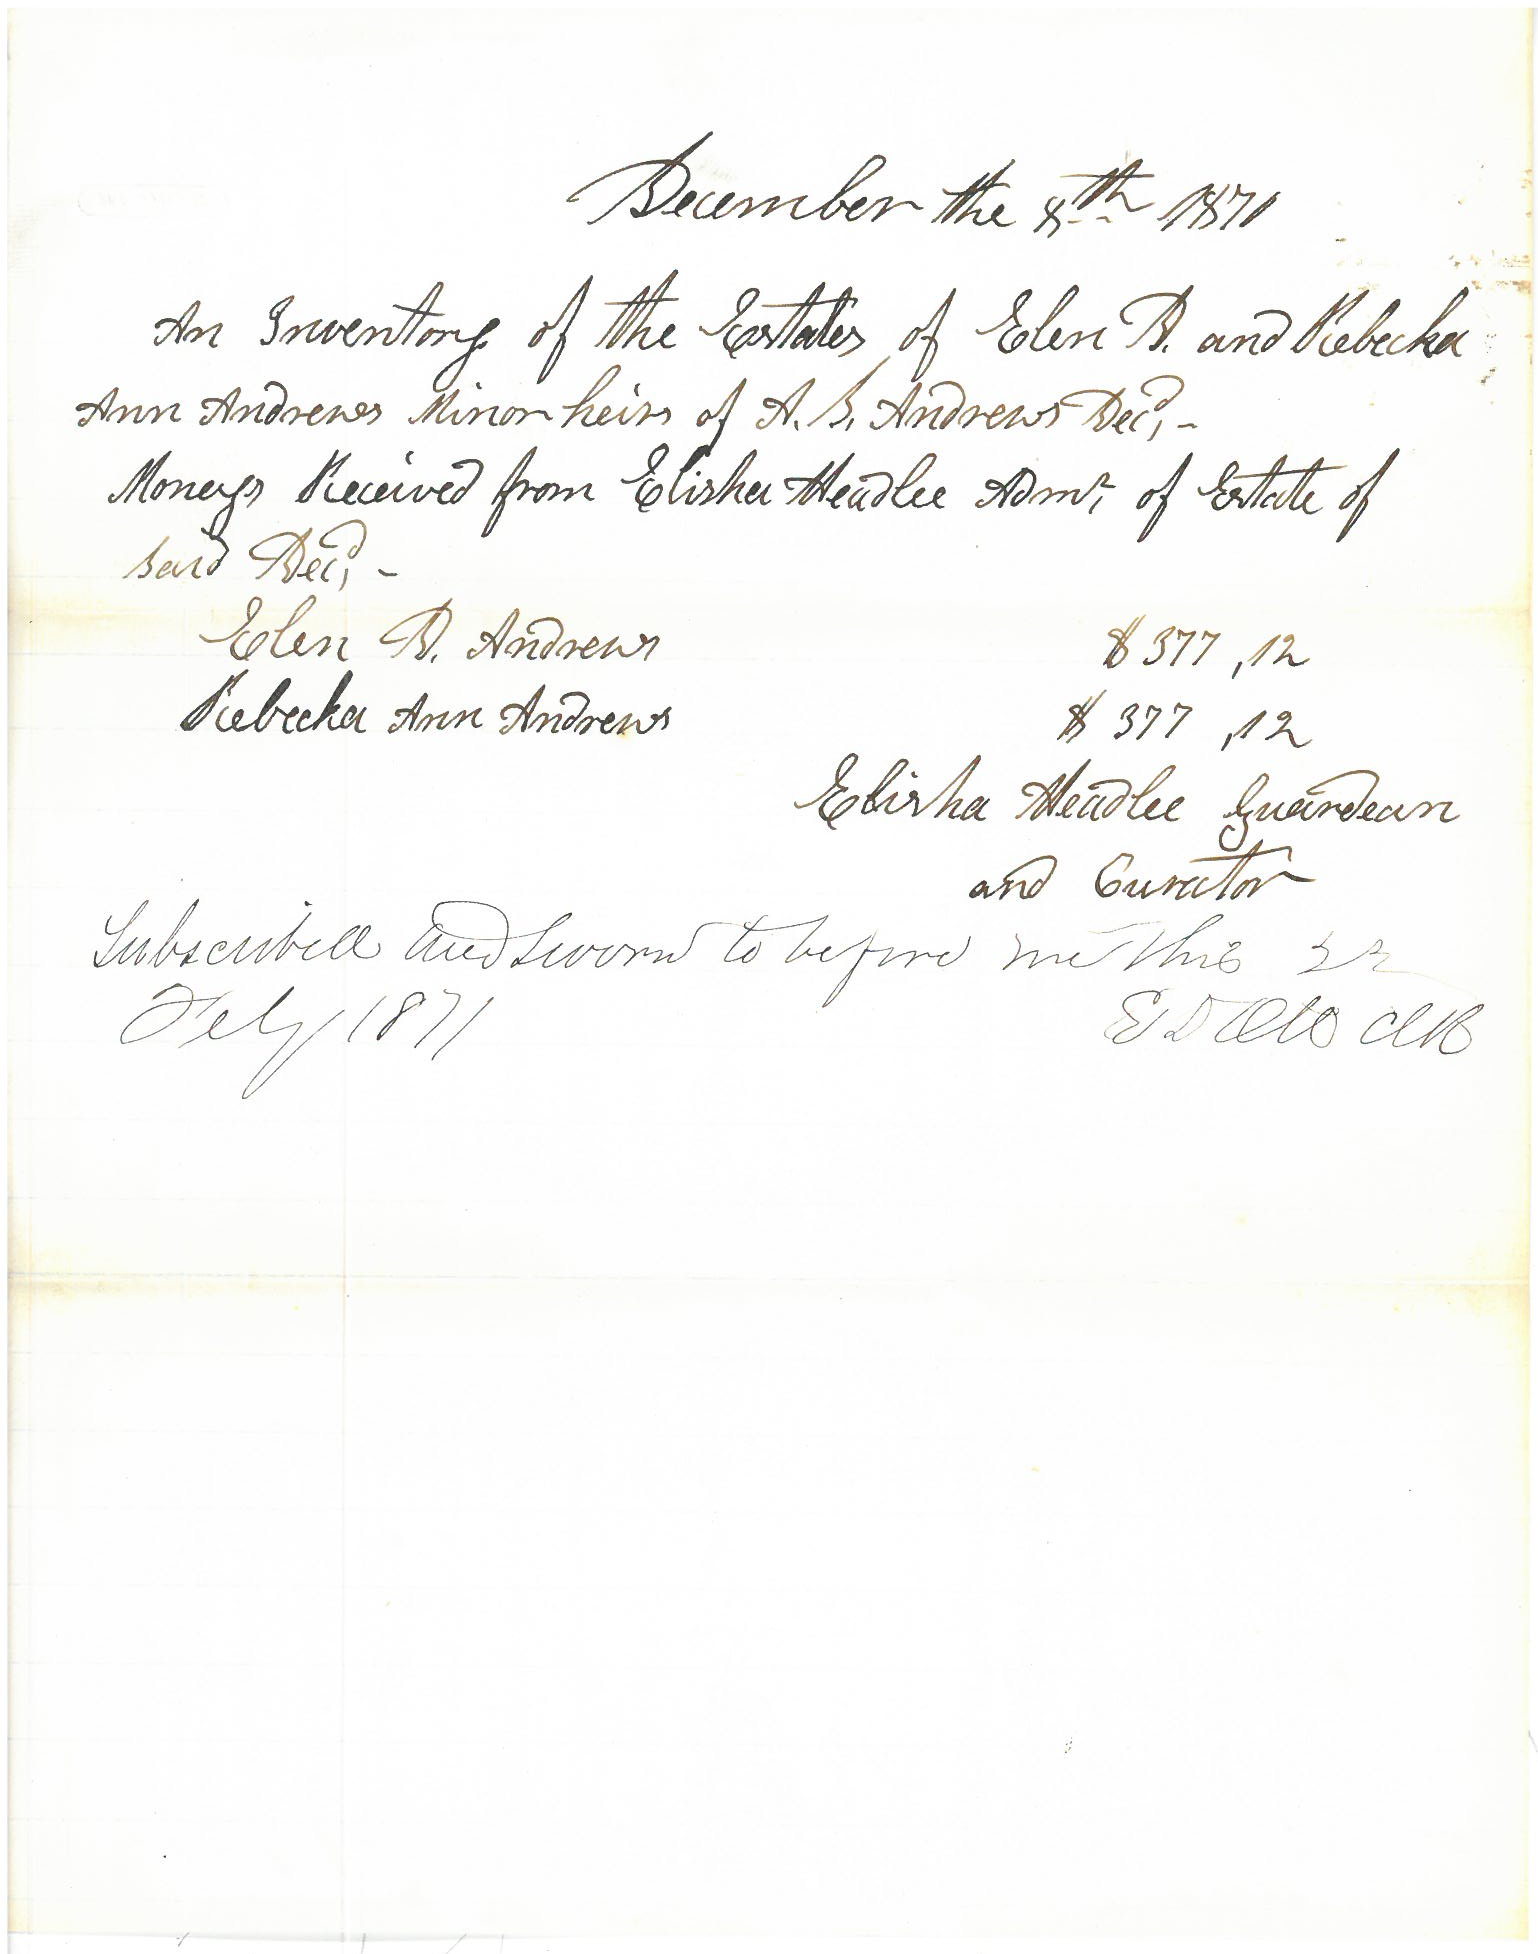 December the 8th 1871
An Inventory of the Estates of Elen D. and Rebecka
Ann Andrews Minor heirs of A. S. Andrews Decd, -
Moneys Received from Elisha Headlee Admr, of Estate of
said Decd, -
Elen D. Andrews $ 377,12
Rebecka Ann Andrews $ 377,12
Elisha Headlee Guardean
and Curator
Subscribed and Sworn to before me this 22
Feby 1871
E D Ott Clk